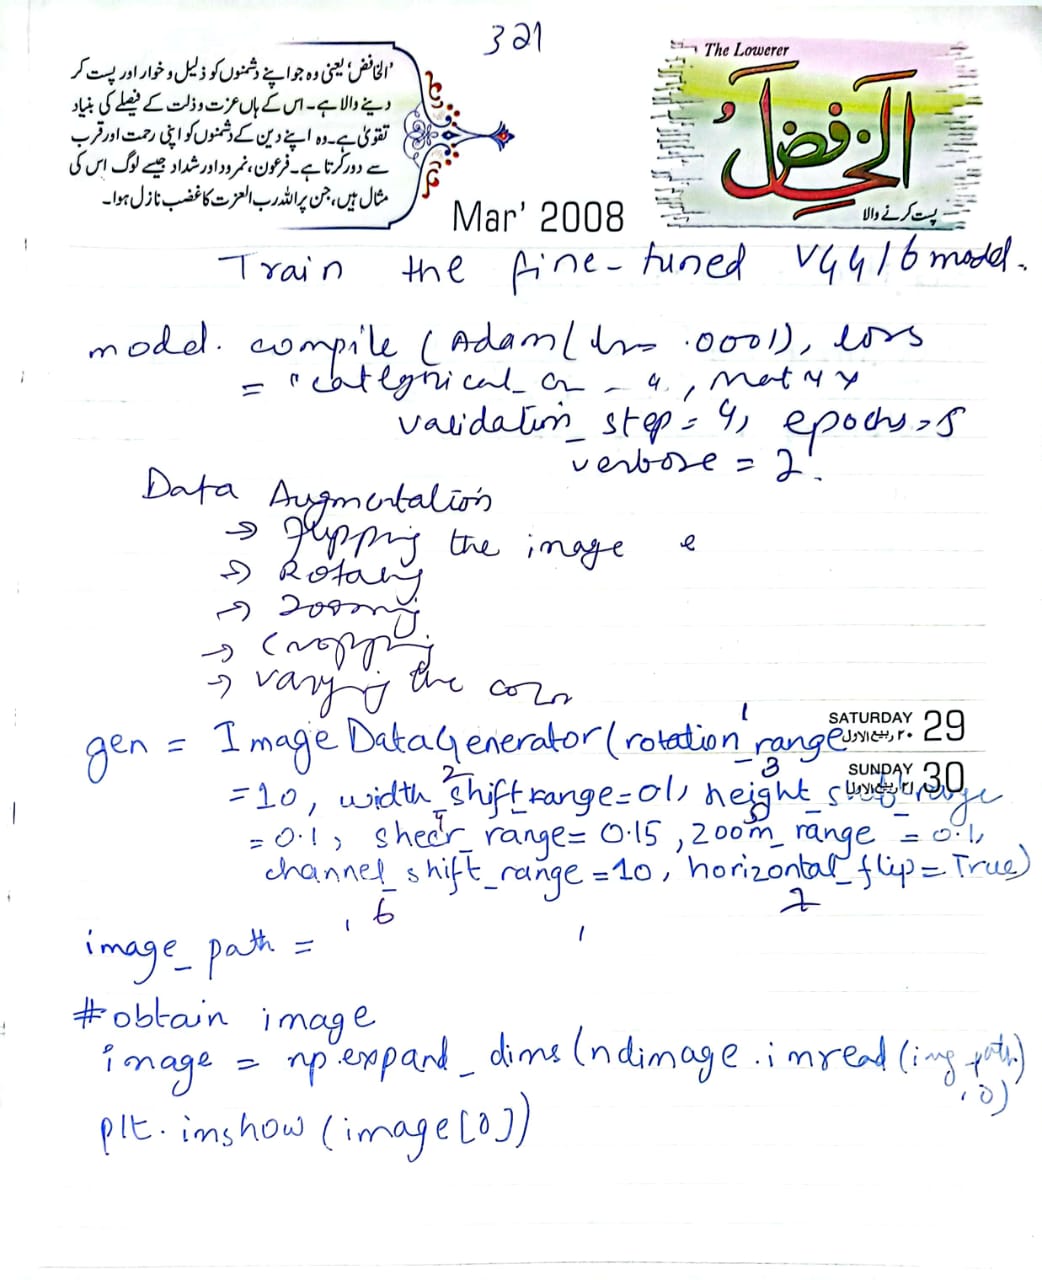 321
The Lowerer
الخَافِضُ
پست کرنے والا
'الخافض' یعنی وہ جو اپنے دشمنوں کو ذلیل و خوار اور پست کر
دینے والا ہے۔ اس کے ہاں عزت و ذلت کے فیصلے کی بنیاد
تقویٰ ہے۔ وہ اپنے دین کے دشمنوں کو اپنی رحمت اور قرب
سے دور کرتا ہے۔ فرعون، نمرود اور شداد جیسے لوگ اس کی
مثال ہیں، جن پر اللہ رب العزت کا غضب نازل ہوا۔
Mar' 2008
Train the fine-tuned VGG16 model.
model. compile (Adam(lr= .0001), loss
= "categorical_cr
validation_step= 4, epochs=5
verbose = 2.
Data Augmentation
→ Flipping the image e
→ Rotating
→ Zooming
→ Cropping
→ varying the color
gen = ImageDataGenerator(rotation_range 1
SATURDAY 29
SUNDAY 30
=10, width_shift_range=01, height_shift_range 2 3
=0.1, shear_range=0.15, zoom_range = 0.1, 4 5
channel_shift_range=10, horizontal_flip=True)
6 7
image_path = ' '
#obtain image
image = np.expand_dims(ndimage.imread(img_path)
,0)
plt.imshow(image[0])